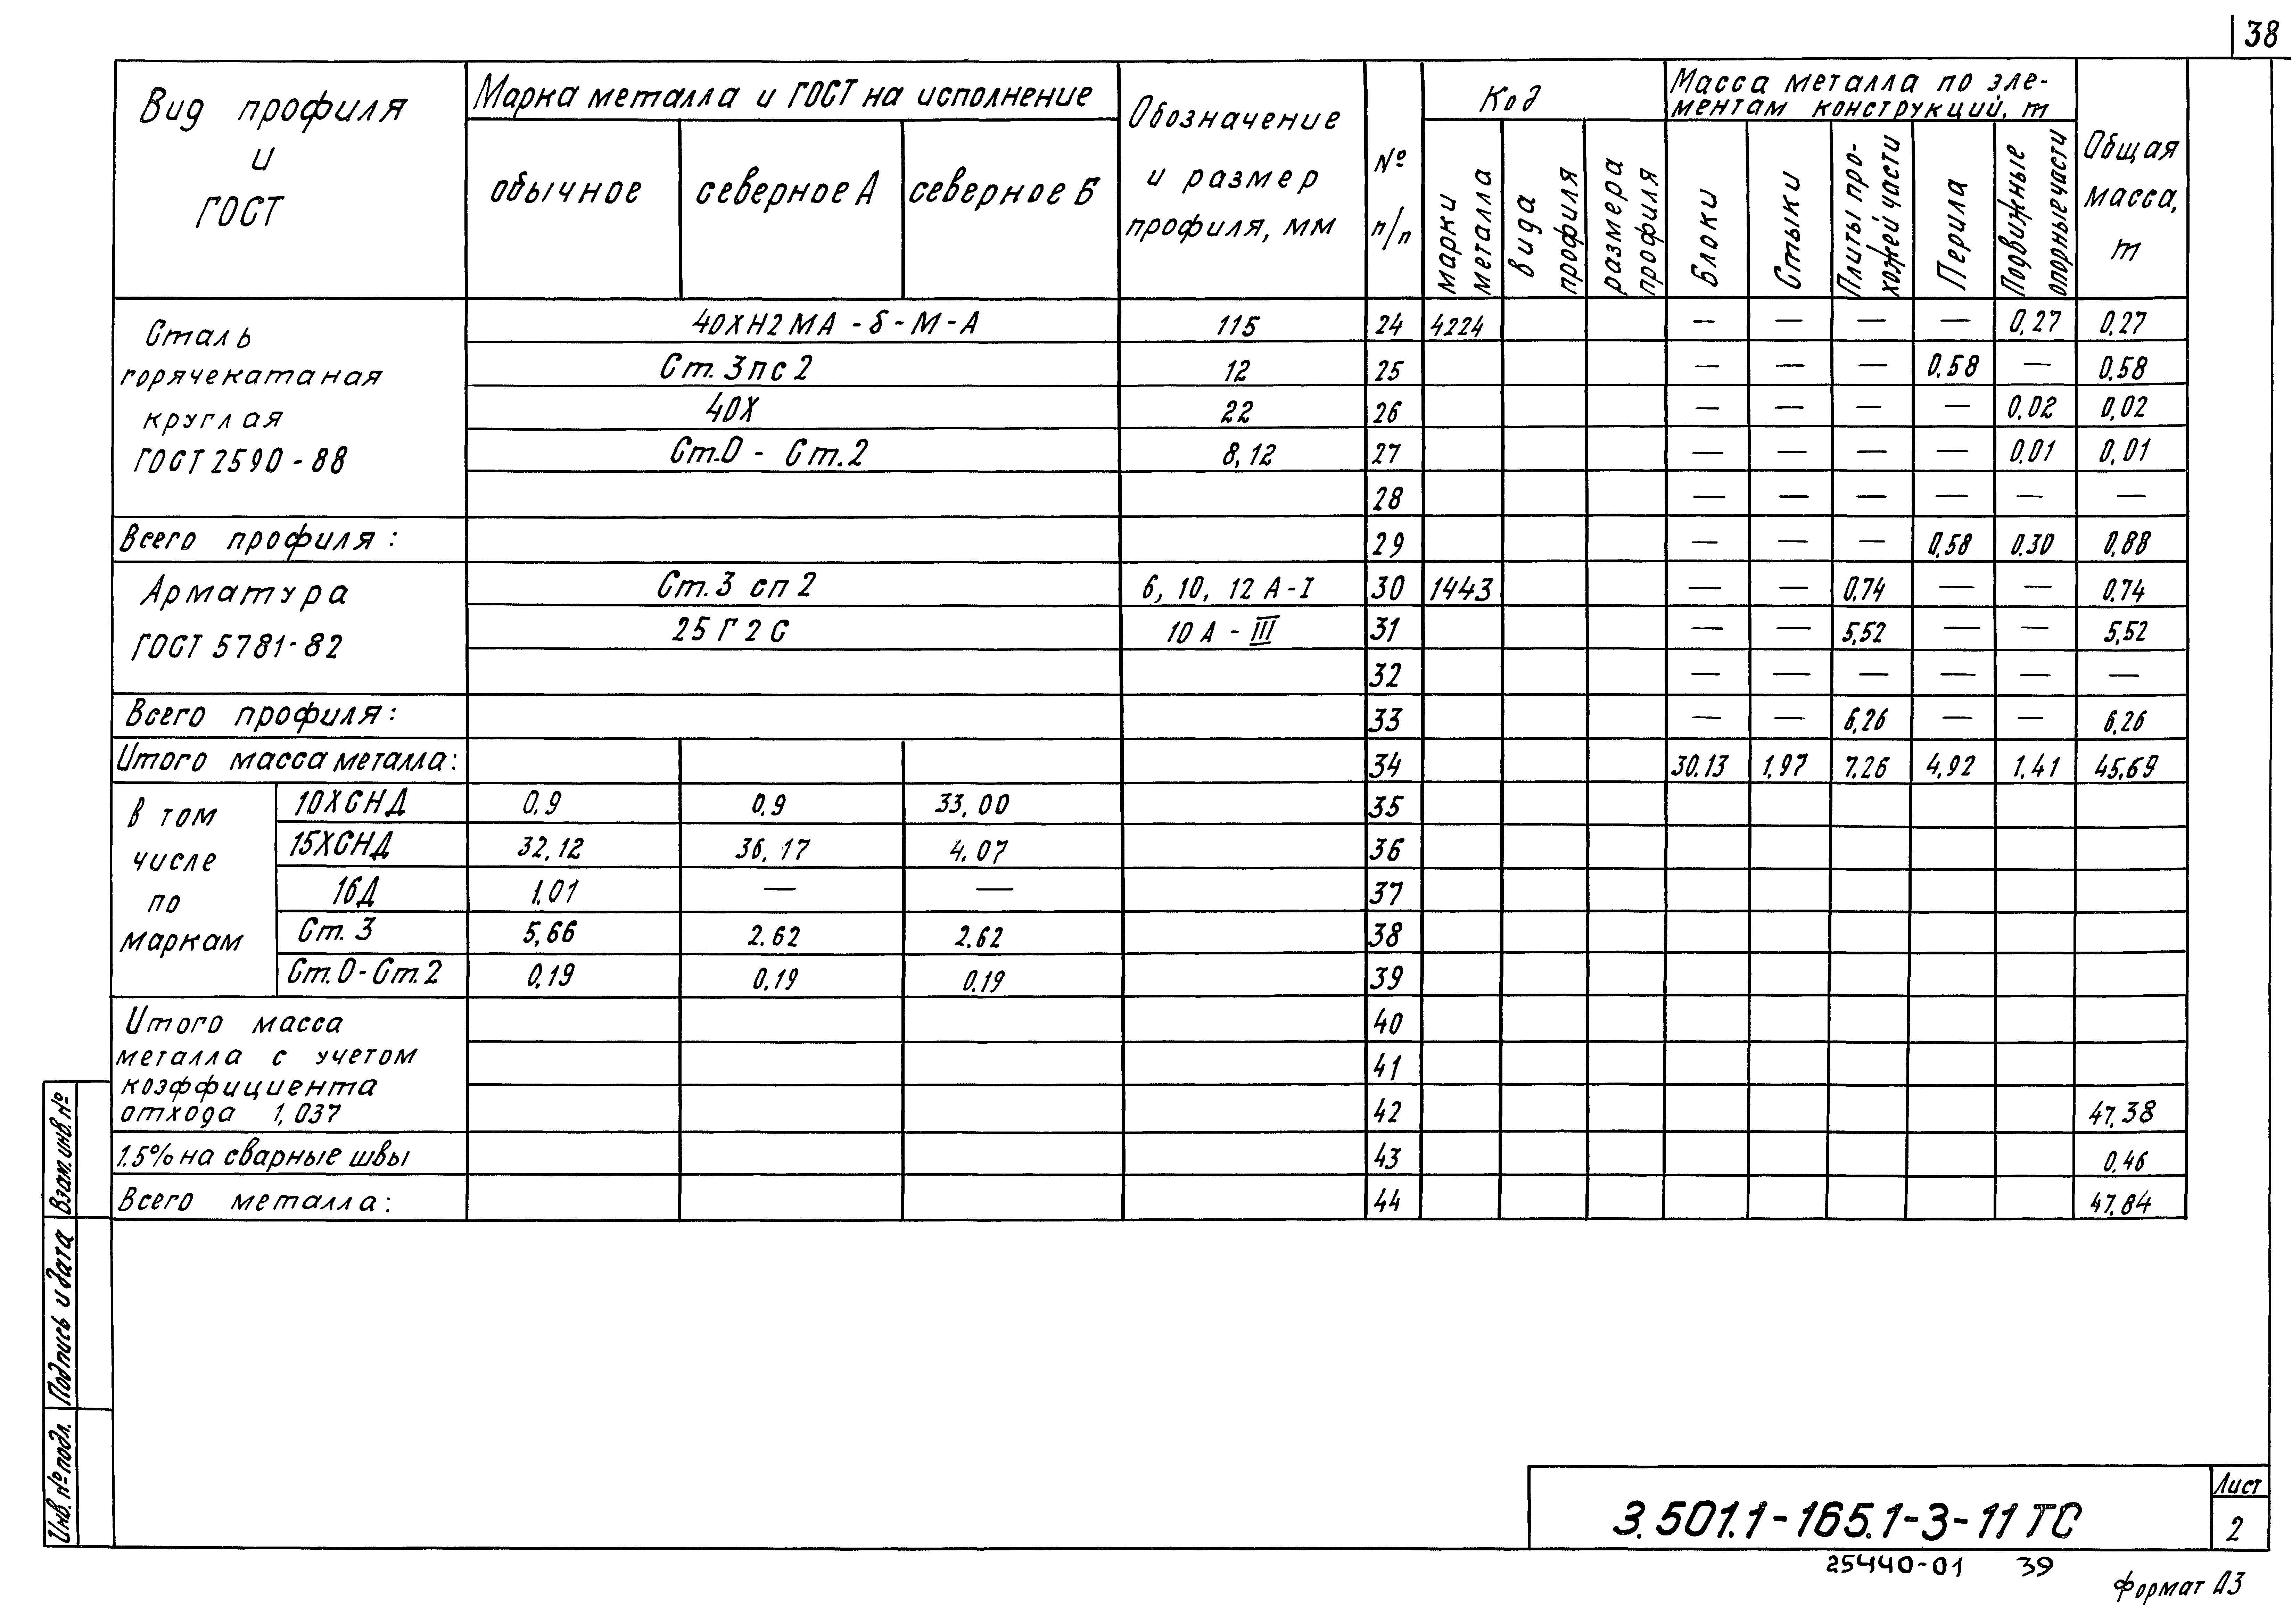 38
Вид профиля и ГОСТ
Марка металла и ГОСТ на исполнение
обычное
северное А
северное Б
Обозначение и размер профиля, мм
№ п/п
Код
марки металла
вида профиля
размера профиля
Масса металла по эле-
ментам конструкций, т
Блоки
Стыки
Плиты про-
хожей части
Перила
Подвижные опорные части
Общая масса, т
Сталь
горячекатаная
круглая
ГОСТ 2590-88
40ХН2МА-δ-М-А 115 24 4224 — — — — 0,27 0,27
Ст.3пс2 12 25 — — — 0,58 — 0,58
40Х 22 26 — — — — 0,02 0,02
Ст.0 - Ст.2 8,12 27 — — — — 0,01 0,01
28 — — — — — —
Всего профиля: 29 — — — 0,58 0,30 0,88
Арматура
ГОСТ 5781-82
Ст.3 сп 2 6, 10, 12 А-I 30 1443 — — 0,74 — — 0,74
25Г2С 10 А - III 31 — — 5,52 — — 5,52
32 — — — — — —
Всего профиля: 33 — — 6,26 — — 6,26
Итого масса металла: 34 30,13 1,97 7,26 4,92 1,41 45,69
в том
числе
по
маркам
10ХСНД 0,9 0,9 33,00 35
15ХСНД 32,12 36,17 4,07 36
16Д 1,01 — — 37
Ст.3 5,66 2.62 2,62 38
Ст.0-Ст.2 0,19 0,19 0,19 39
Итого масса 40
металла с учетом 41
коэффициента
отхода 1,037 42 47,38
1.5% на сварные швы 43 0,46
Всего металла: 44 47,84
Взам. инв. №
Подпись и дата
Инв. № подл.
3.501.1-165.1-3-11 ТС
Лист
2
25440-01 39
Формат А3